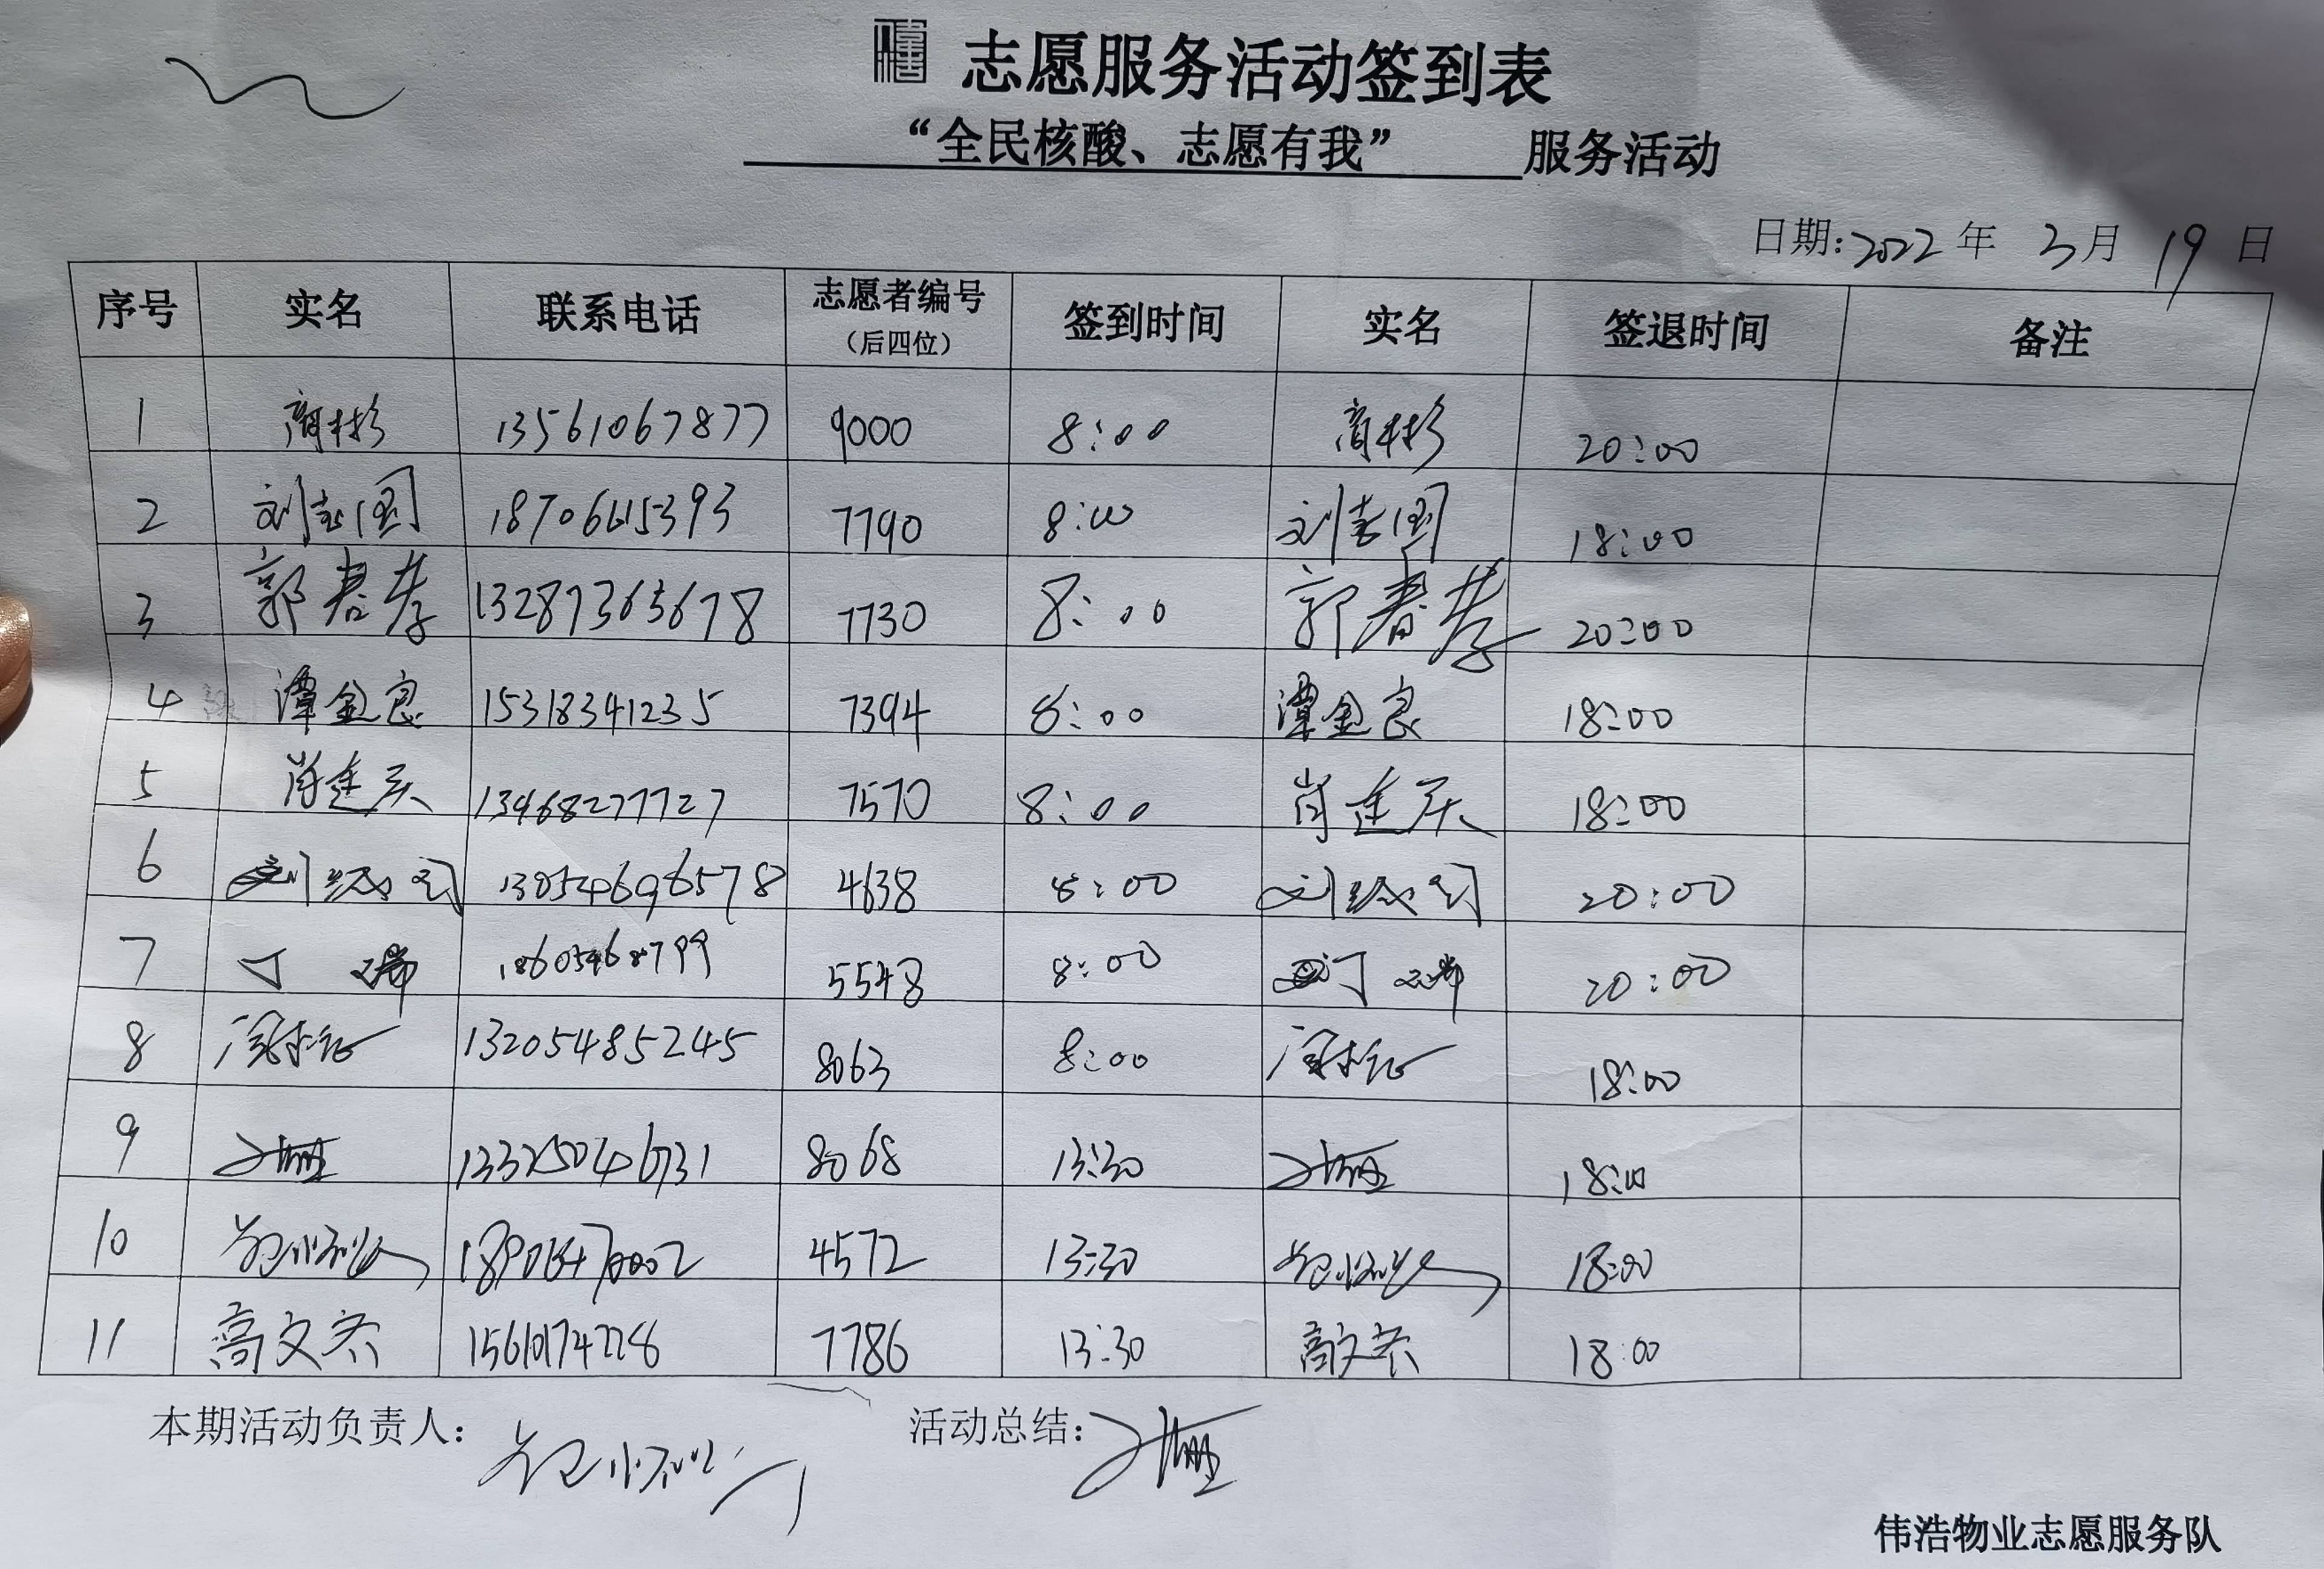 志愿服务活动签到表
“全民核酸、志愿有我” 服务活动
日期:2022年 3月 19日
序号 实名 联系电话 志愿者编号（后四位） 签到时间 实名 签退时间 备注
1 商彬 13561067877 9000 8:00 商彬 20:00
2 刘志国 18706615393 7790 8:00 刘志国 18:00
3 郭春孝 13287365678 7730 8:00 郭春孝 20:00
4 谭金良 15318341235 7394 8:00 谭金良 18:00
5 肖建庆 13468277727 7570 8:00 肖建庆 18:00
6 13054696578 4638 8:00 20:00
7 丁瑞 18605468799 5548 8:00 丁瑞 20:00
8 13205485245 8063 8:00 18:00
9 13325046731 8068 13:30 18:00
10 4572 13:30 18:00
11 高文芬 15610174228 7786 13:30 高文芬 18:00
本期活动负责人: 活动总结:
伟浩物业志愿服务队